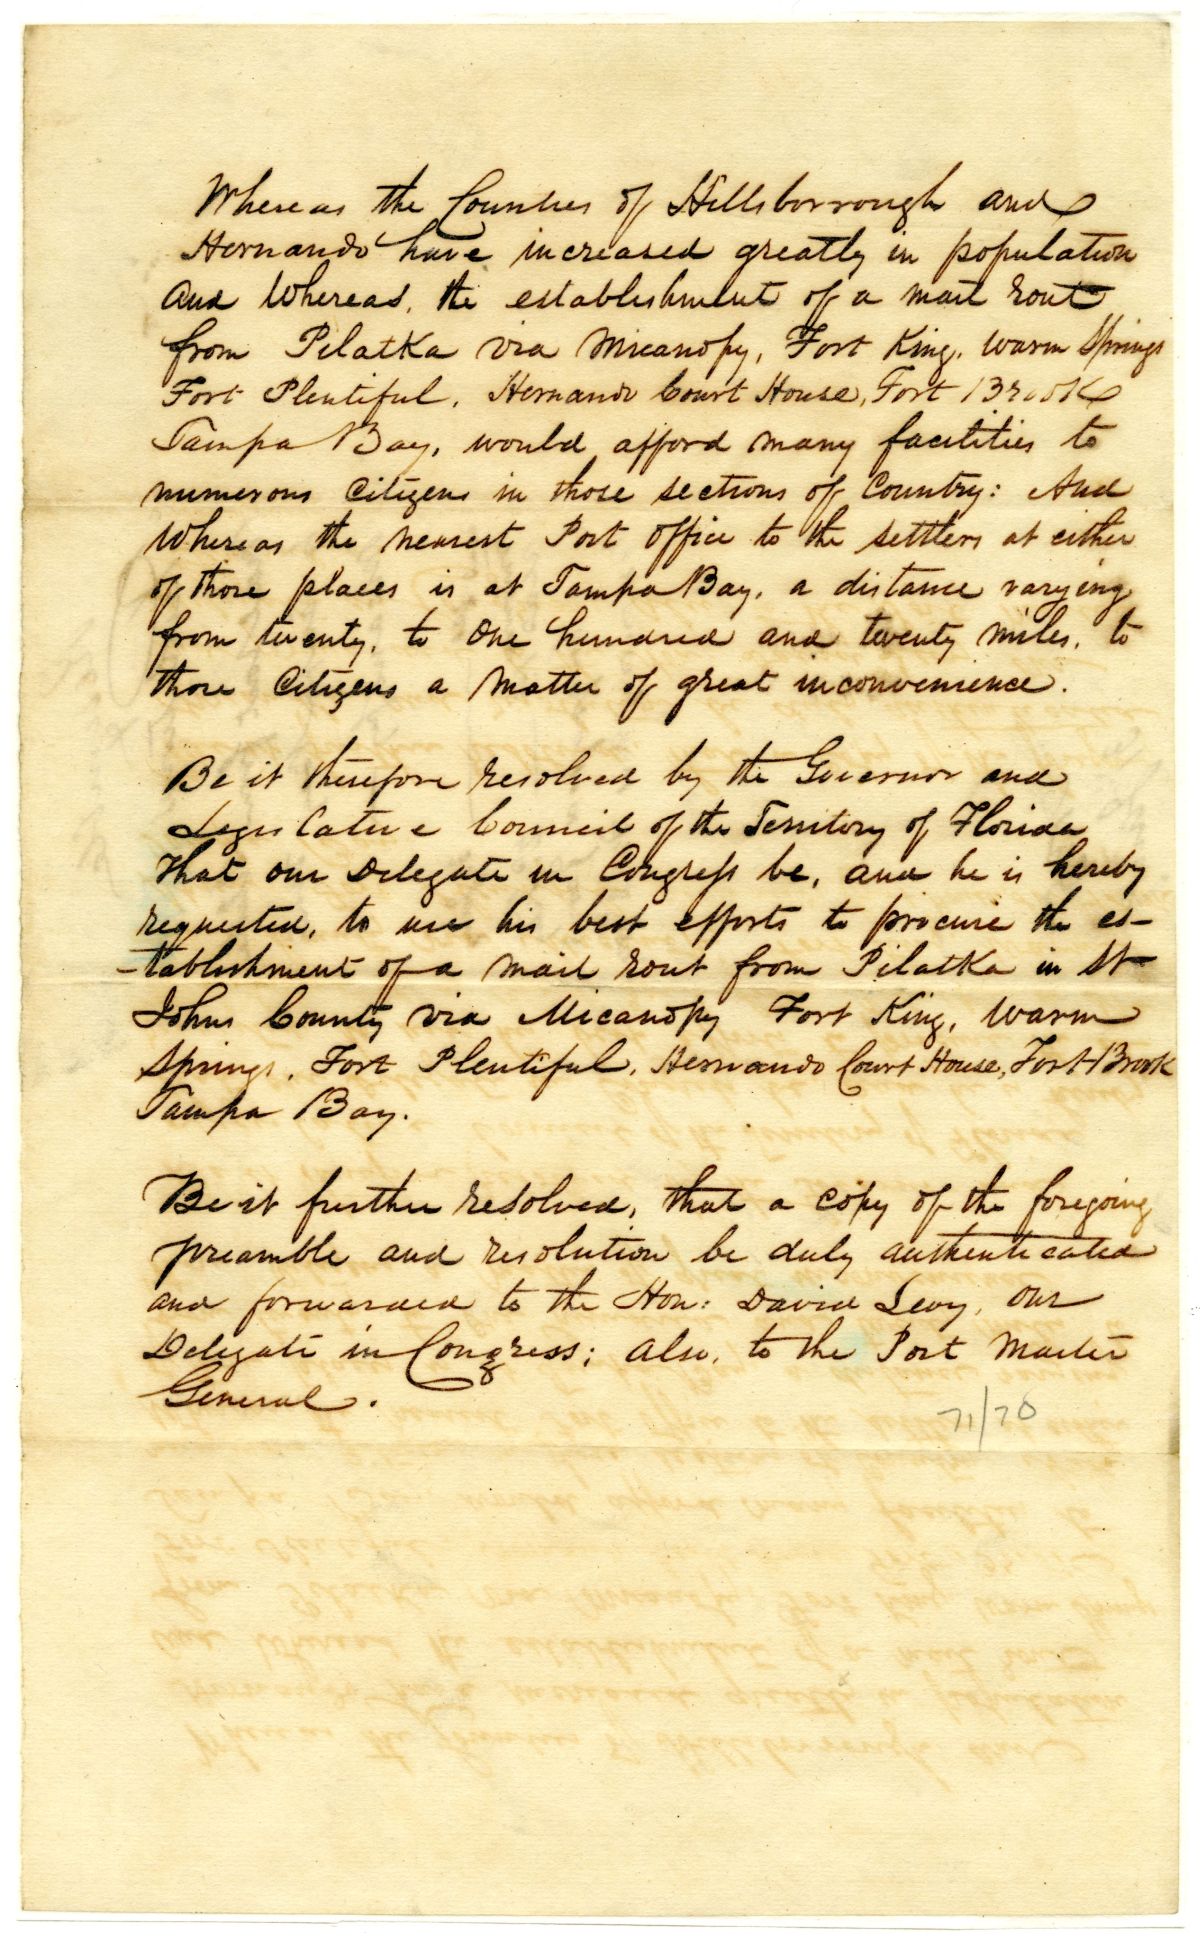 Whereas the Counties of Hillsborrough and
Hernando have increased greatly in population
And Whereas, the establishment of a mail rout
from Pilatka via Micanopy, Fort King, Warm Springs
Fort Plentiful, Hernando Court House, Fort Brook
Tampa Bay, would afford many facilities to
numerous Citizens in those sections of Country: And
Whereas the nearest Post Office to the settlers at either
of those places is at Tampa Bay, a distance varying
from twenty, to One hundred and twenty miles, to
those Citizens a matter of great inconvenience.
Be it therefore resolved by the Governor and
Legislative Council of the Territory of Florida
That our Delegate in Congress be, and he is hereby
requested, to use his best efforts to procure the es-
-tablishment of a mail rout from Pilatka in St
Johns County via Micanopy Fort King, Warm
Springs, Fort Plentiful, Hernando Court House, Fort Brook
Tampa Bay.
Be it further resolved, that a copy of the foregoing
preamble and resolution be duly authenticated
and forwarded to the Hon: David Levy, our
Delegate in Congress; also, to the Post Master
General.
71/70